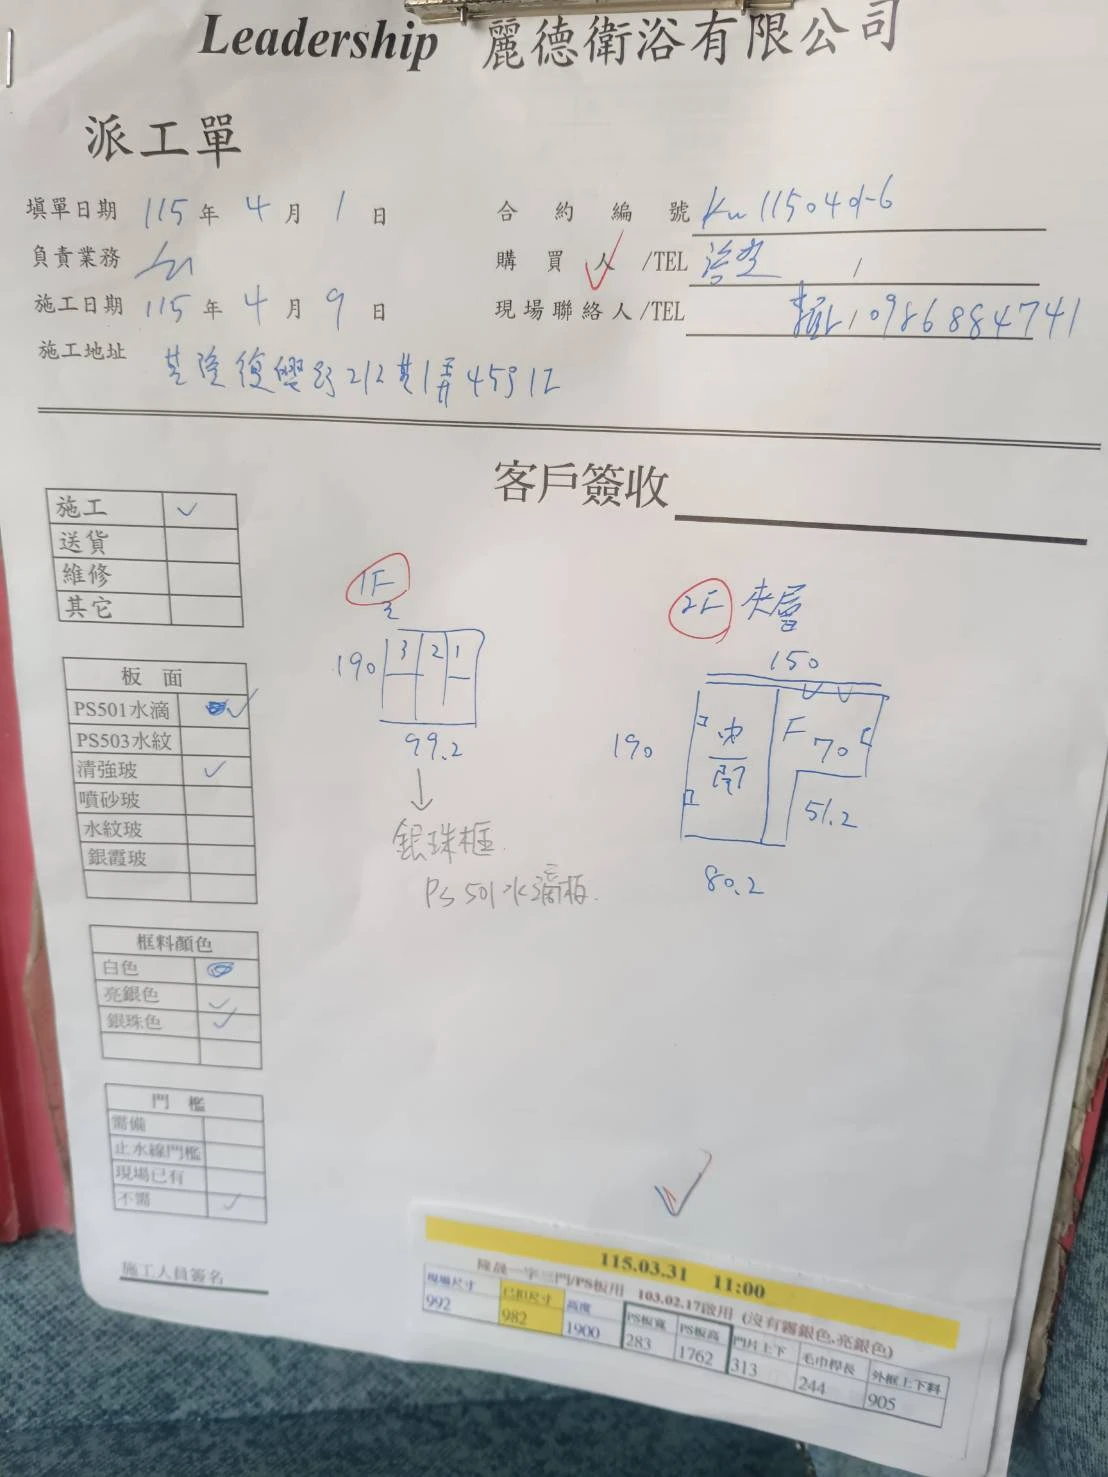 Leadership 麗德衛浴有限公司
派工單
填單日期 115 年 4 月 1 日
合約編號 Ku 1150401-6
負責業務
購買人/TEL /
施工日期 115 年 4 月 9 日
現場聯絡人/TEL 賴/0986884741
施工地址 基隆復興路212巷1弄45號1F
客戶簽收
施工 ✓
送貨
維修
其它
板面
PS501水滴 ✓
PS503水紋
清強玻 ✓
噴砂玻
水紋玻
銀霞玻
框料顏色
白色
亮銀色 ✓
銀珠色 ✓
門檻
需備
止水線門檻
現場已有
不需 ✓
施工人員簽名
1F
190 3 2 1
99.2
↓
銀珠框
PS 501水滴板.
2F 夾層
150
190 內開 F 70
51.2
80.2
115.03.31 11:00
隆晟一字三門/PS板用 103.02.17啟用 (沒有霧銀色.亮銀色)
現場尺寸 已扣尺寸 高度 PS板寬 PS板高 門片上下 毛巾桿長 外框上下料
992 982 1900 283 1762 313 244 905